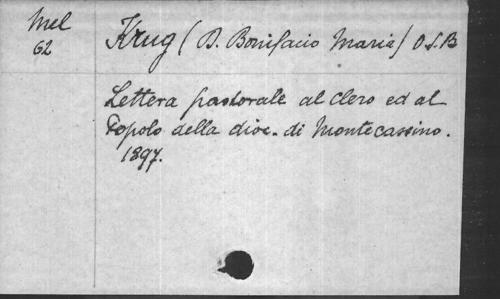 Mel
62
Krug (D. Bonifacio Maria) O.S.B
Lettera pastorale al clero ed al
Popolo della dioc. di Montecassino.
1897.